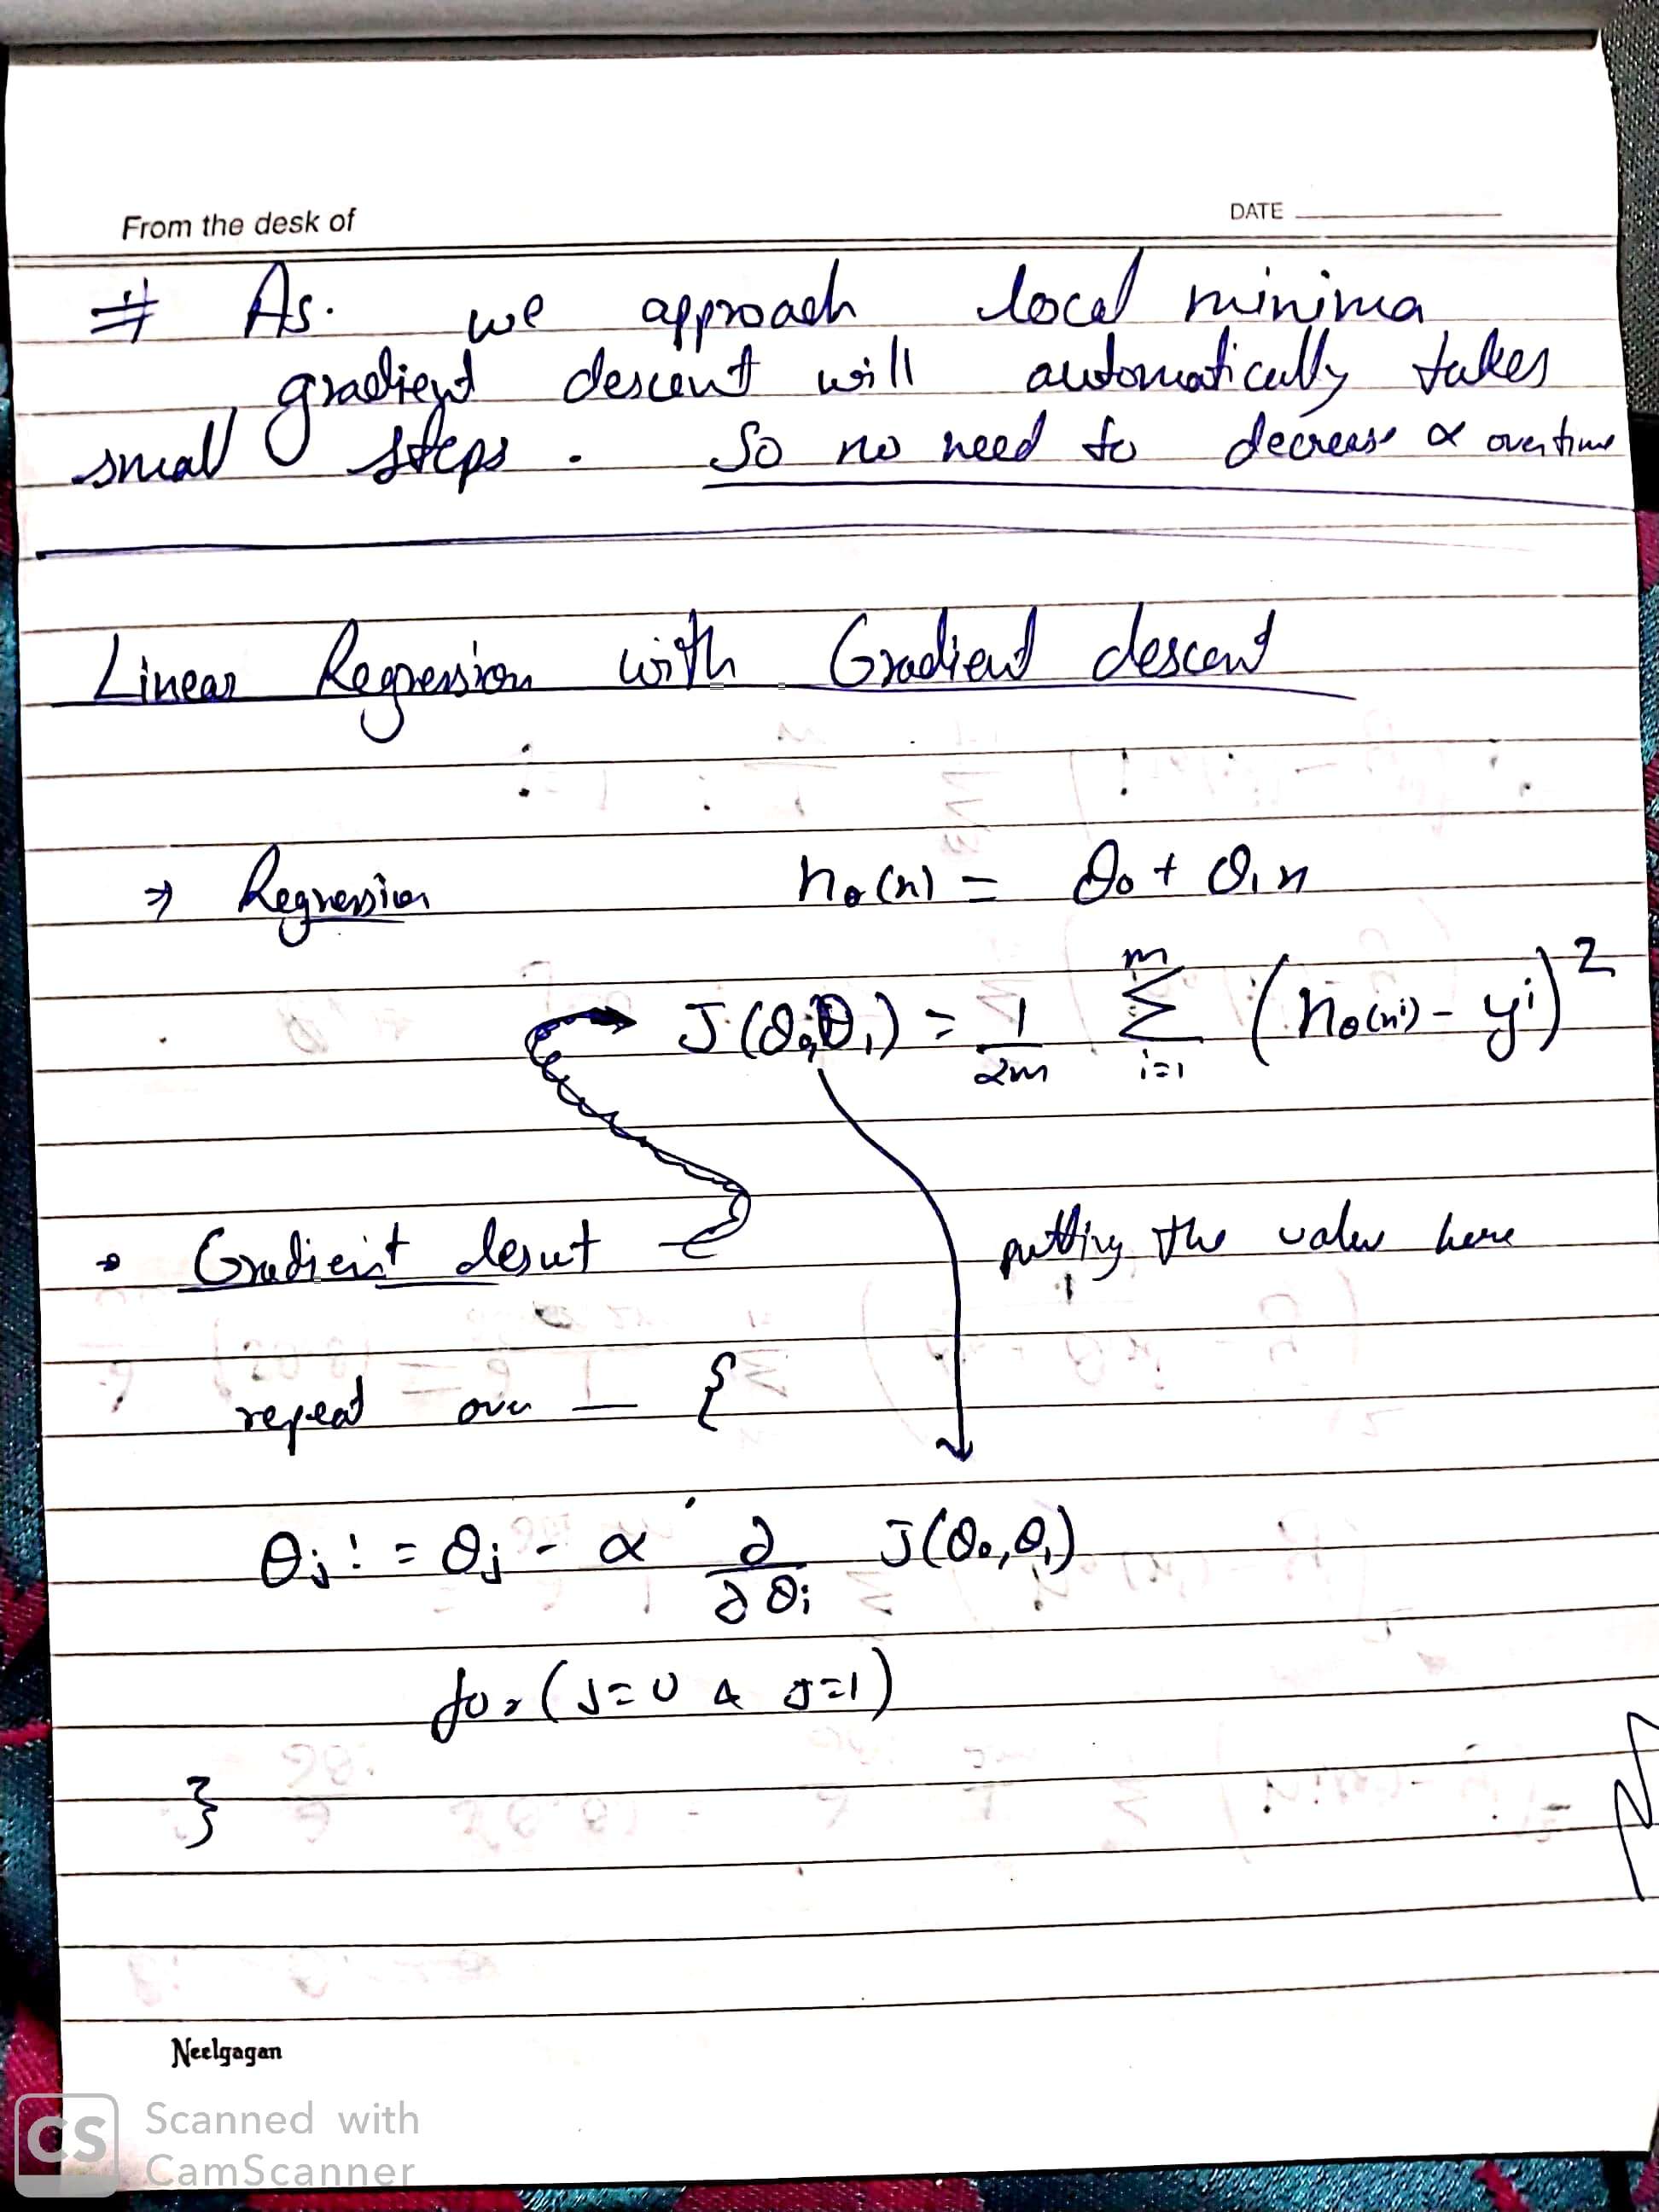 From the desk of
DATE
# As. we approach local minima
gradient descent will automatically takes
small steps. So no need to decrease α overtime
Linear Regression with Gradient descent
→ Regression hθ(x) = θ₀ + θ₁x
J(θ₀,θ₁) = 1/2m Σ i=1 m (hθ(xⁱ) - yⁱ)²
→ Gradient desut
putting the value here
repeat over — {
θj := θj - α ∂/∂θj J(θ₀,θ₁)
for (J=0 & J=1)
}
Neelgagan
CS Scanned with
CamScanner